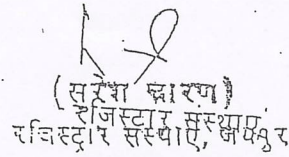 (सुरेश चारण)
रजिस्टार संस्थाएं
रजिस्ट्रार संस्थाएं, जयपुर